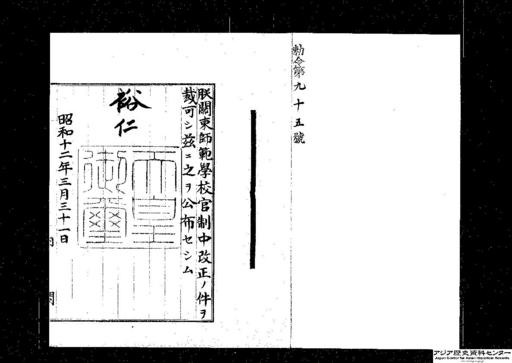 勅令第九十五號
朕關東師範學校官制中改正ノ件ヲ
裁可シ茲ニ之ヲ公布セシム
裕仁
天皇
御璽
昭和十二年三月三十一日
内閣
アジア歴史資料センター
Japan Center for Asian Historical Records